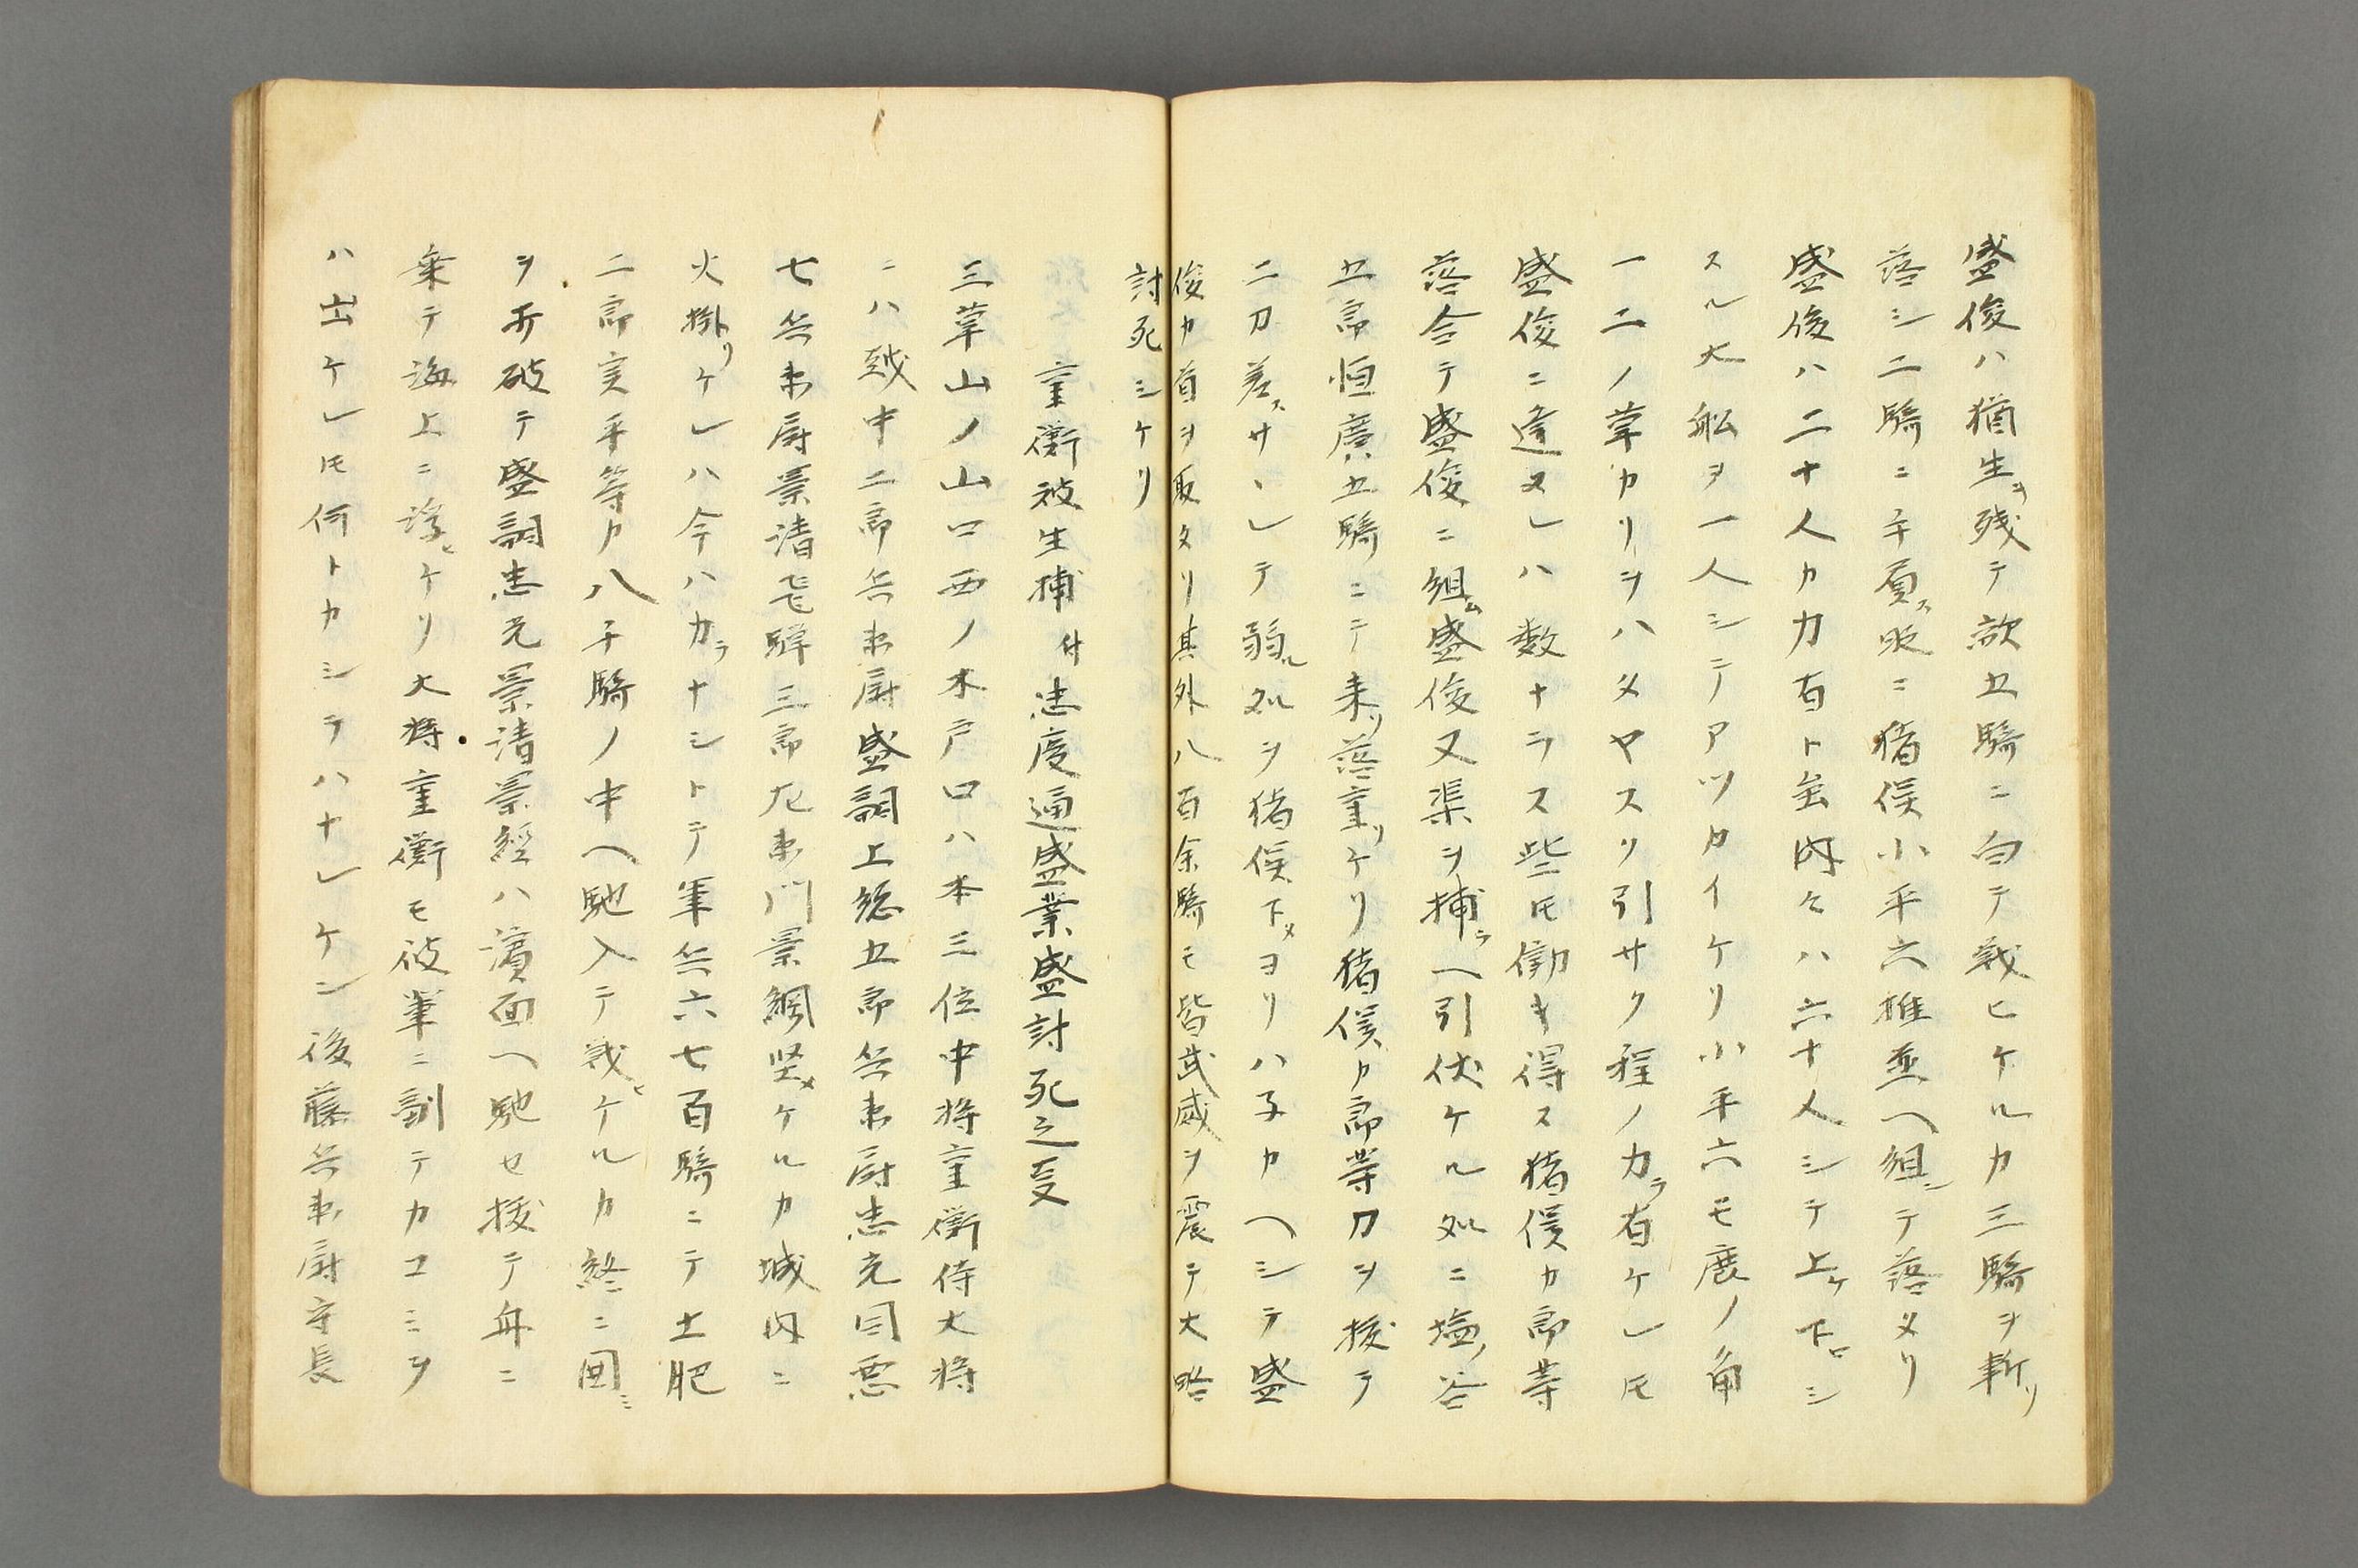 盛俊ハ猶生ヲ残テ敵五騎ニ向テ戦ヒケルカ三騎ヲ斬リ
落シ二騎ニ手負ス処ニ猪俣小平六推並ヘ組ンテ落タリ
盛俊ハ二十人カ力有ト云内々ハ六十人シテ上ケ下ロシ
スル大舩ヲ一人シテアツカイケリ小平六モ鹿ノ角
一二ノ草カリヲハタヤスリ引サク程ノ力ラ有ケレ𪜈
盛俊ニ逢ヌレハ数ナラス些𪜈働キ得ス猪俣カ郎等
落合テ盛俊ニ組ム盛俊又渠ヲ捕ラヘ引伏ケル処ニ塩ノ谷
五郎恒廣五騎ニテ来リ落重リケリ猪俣カ郎等刀ヲ抜テ
二刀差スサヽレテ弱ル処ヲ猪俣下タヨリハ子カヘシテ盛
俊カ首ヲ取タリ其外八百余騎モ皆武威ヲ震テ大略
討死シケリ
重衡被生捕付忠度通盛業盛討死之叓
三草山ノ山口西ノ木戸口ハ本三位中将重衡侍大将
ニハ越中二郎兵衛尉盛嗣上総五郎兵衛尉忠光同悪
七兵衛尉景清飛騨三郎左衛門景綱堅メケルカ城内ニ
火掛リケレハ今ハ力ラナシトテ軍兵六七百騎ニテ土肥
二郎実平等カ八千騎ノ中ヘ馳入テ戦ヒケルカ終ニ囲ミ
ヲ打破テ盛嗣忠光景清景經ハ濱面ヘ馳セ抜テ舟ニ
乗テ海上ニ浮ヒケリ大将重衡モ彼輩ニ副テカコミヲ
ハ出ケレ𪜈何トカシテハナレケン後藤兵衛尉守長